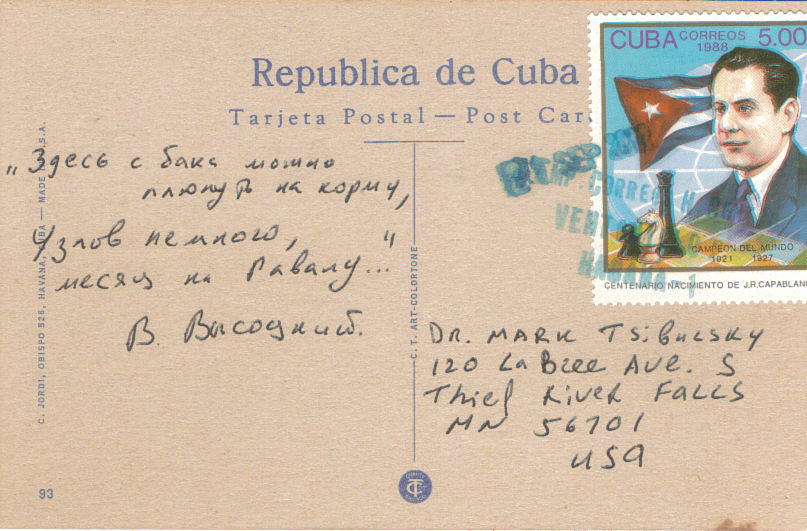 Republica de Cuba
Tarjeta Postal — Post Car
"Здесь с бака можно
плюнуть на корму,
Узлов немного,
месяц на Гавану..."
В. Высоцкий.
C. JORDI, OBISPO 525, HAVANA, CUBA — MADE U.S.A.
C. T. ART-COLORTONE
93
CUBA CORREOS 5.00
1988
CAMPEON DEL MUNDO
1921 1927
CENTENARIO NACIMIENTO DE J.R.CAPABLAN
CORREO
HABANA-1
DR. MARK TSiBULSKY
120 LaBree AVE. S
Thief River FALLS
MN 56701
USA